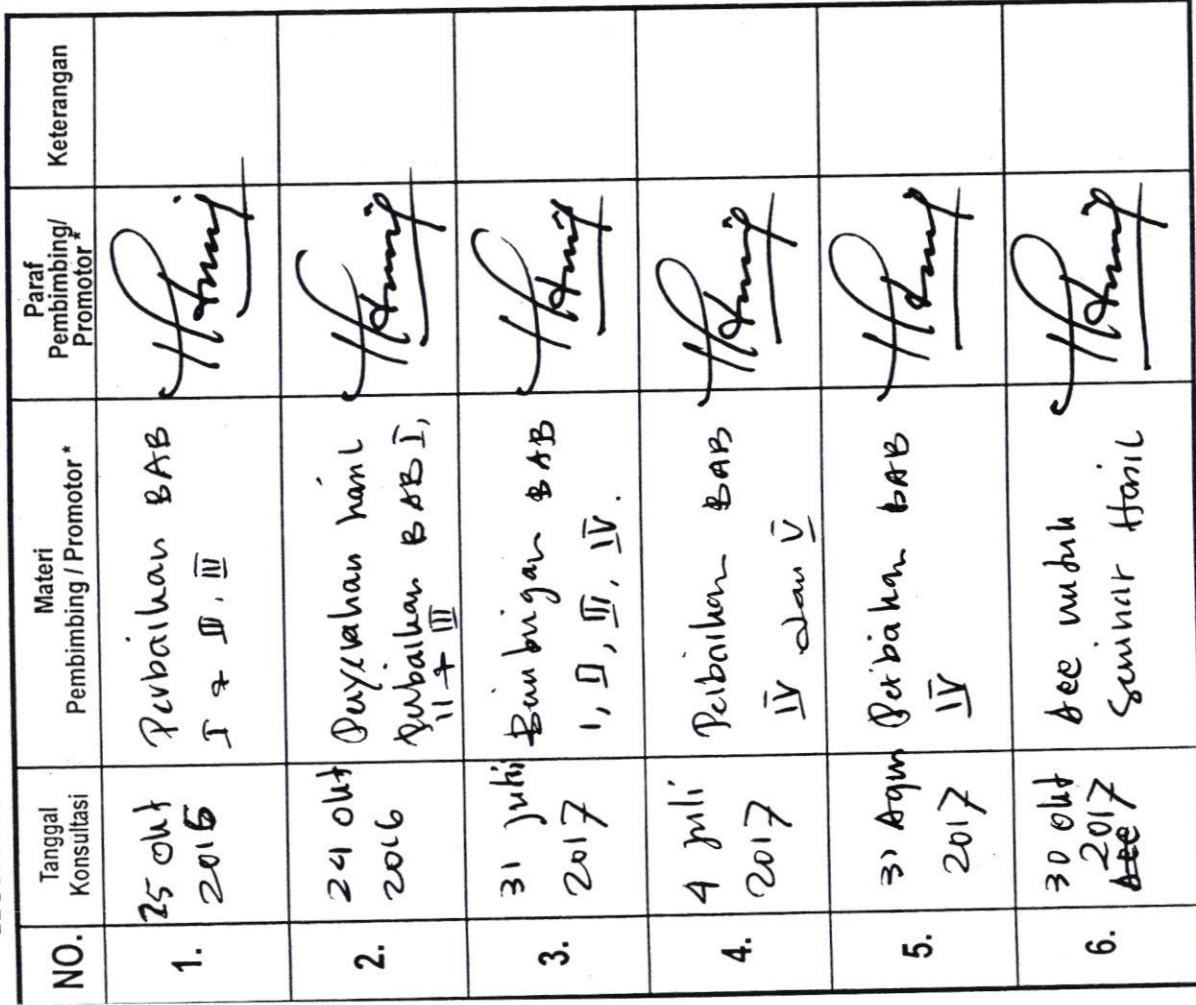 NO.
Tanggal
Konsultasi
Materi
Pembimbing / Promotor*
Paraf
Pembimbing/
Promotor*
Keterangan
1.
25 Okt
2016
Perbaikan BAB
I & II, III
2.
24 Okt
2016
Penyerahan hasil
Perbaikan BAB I,
II + III
3.
31 Juli
2017
Bimbingan BAB
I, II, III, IV.
4.
4 Juli
2017
Perbaikan BAB
IV dan V
5.
31 Agus
2017
Perbaikan BAB
IV
6.
30 Okt
2017
Acc
Acc untuk
Seminar Hasil